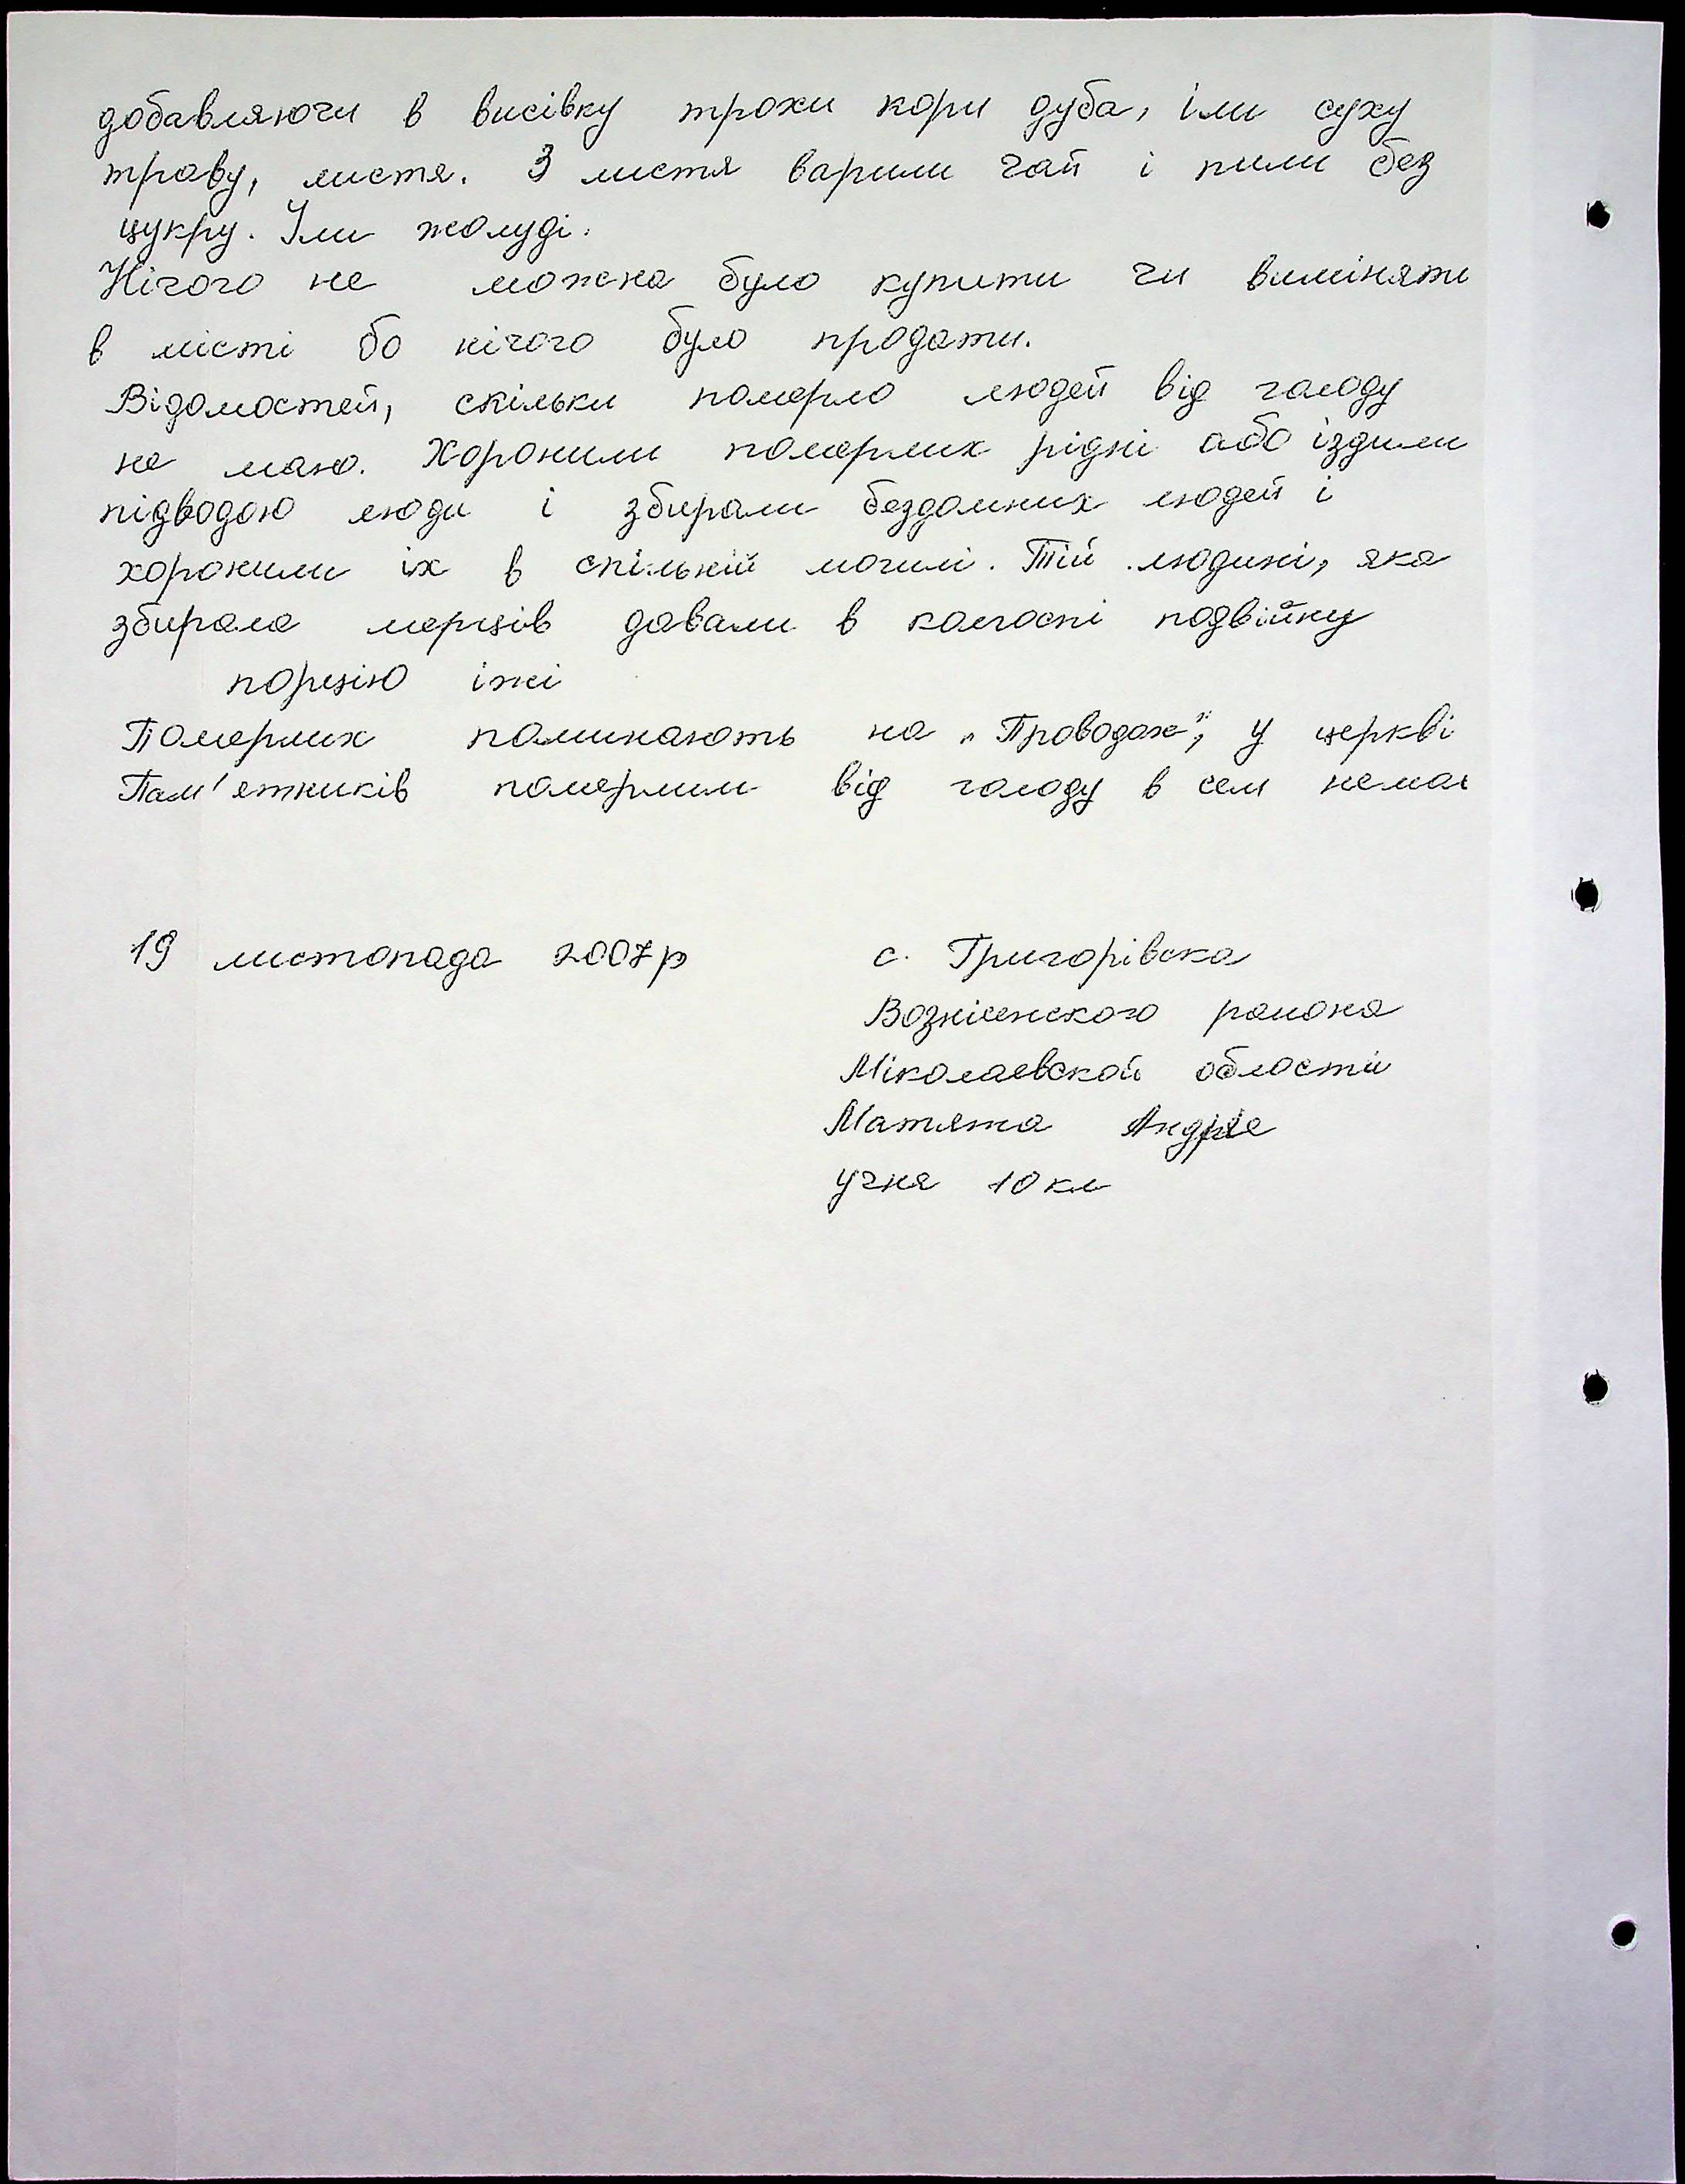 добавляючи в висівку трохи кори дуба, іли суху
траву, листя. З листя варили чай і пили без
цукру. Їли жолуді.
Нічого не можна було купити чи виміняти
в місті бо нічого було продати.
Відомостей, скільки померло людей від голоду
не маю. Хоронили померлих рідні або їздили
підводою люди і збирали бездомних людей і
хоронили їх в спільній могилі. Тій людині, яка
збирала мерців давали в колгоспі подвійну
порцію їжі
Померлих поминають на „Проводах", у церкві
Пам'ятників померлим від голоду в селі немає
19 листопада 2007р
с. Григорівска
Вознісенского района
Міколаевской области
Матята Андрія
учня 10 кл